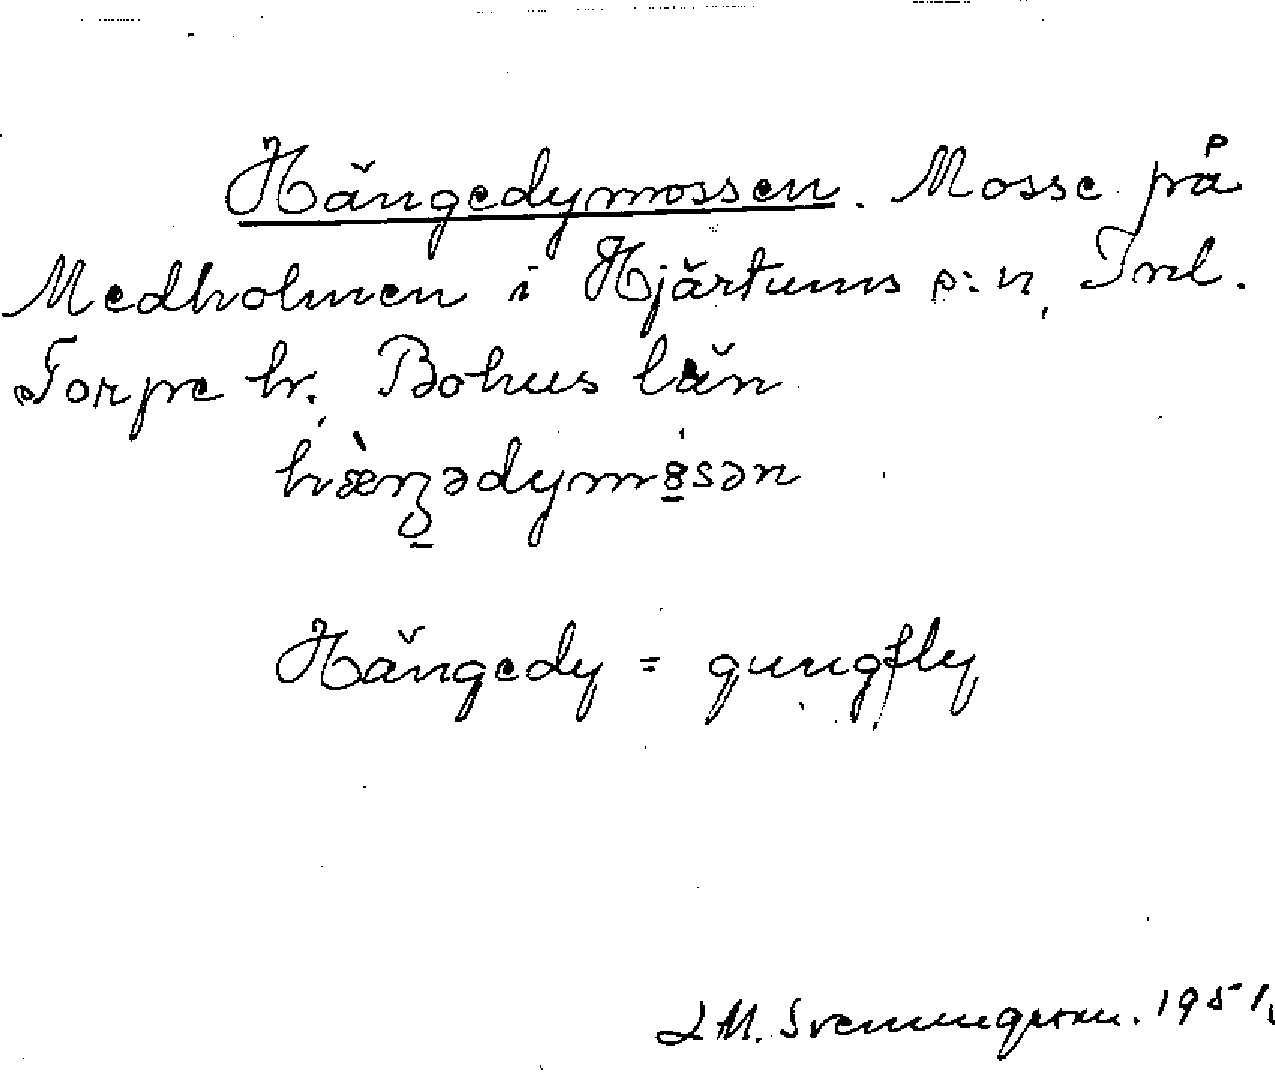 Hängedymossen. Mosse på
Medholmen i Hjärtums s:n, Inl.
Torpe hr, Bohus län
Hängedy = gungfly
M. Svenungsson. 1951.